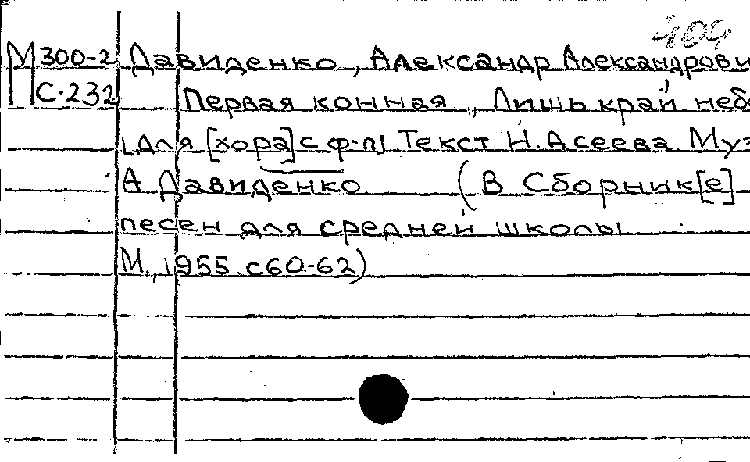 404
М300-2 Давиденко, Александр Александрови
П С.232 Первая конная, Лишь край неб
, Для [хора] с ф-п, Текст Н. Асеева Муз
А Давиденко (В Сборник[е]
песен для средней школы
М., 1955 с 60-62)